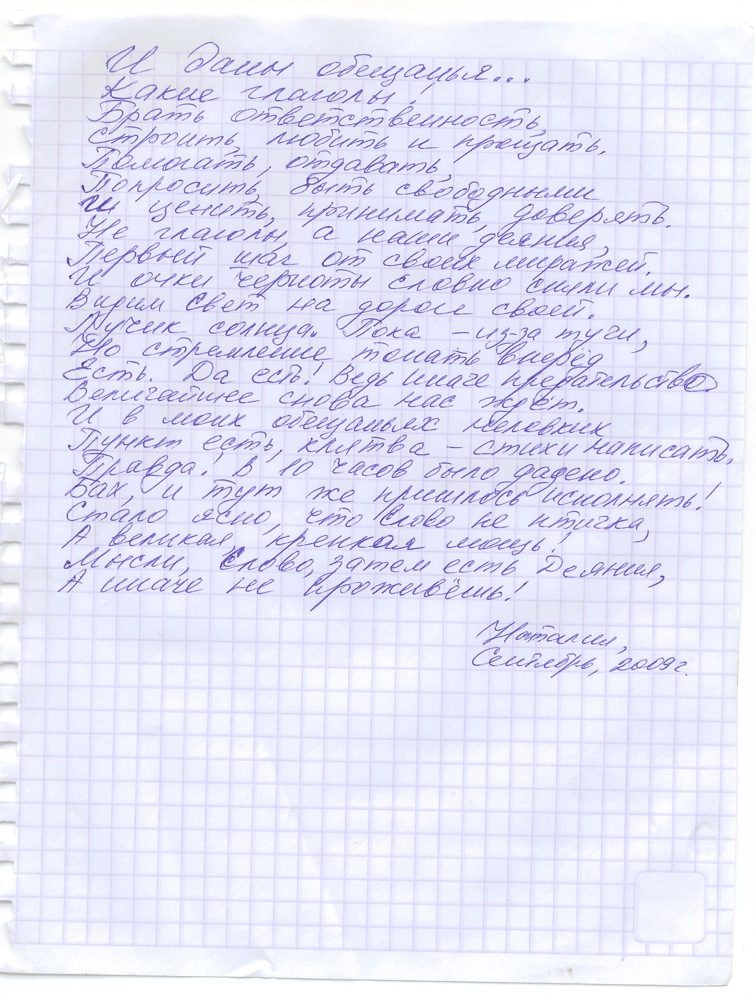 И даны обещанья...
Какие глаголы!
Брать ответственность,
Строить, любить и прощать.
Помогать, отдавать,
Попросить, быть свободными
И ценить, принимать, доверять.
Не глаголы, а наши деянья,
Первый шаг от своих миражей.
И очки черноты словно сняли мы.
Видим свет на дороге своей.
Лучик солнца. Пока – из-за тучи,
Но стремление топать вперёд
Есть. Да есть! Ведь иначе предательство
Величайшее снова нас ждёт.
И в моих обещаньях неловких
Пункт есть, клятва – стихи написать.
Правда! В 10 часов было дадено.
Бах, и тут же пришлось исполнять!
Стало ясно, что слово не птичка,
А великая, крепкая мощь!
Мысли, Слово, затем есть Деяния,
А иначе не проживёшь!
Наталия,
Сентябрь, 2009г.